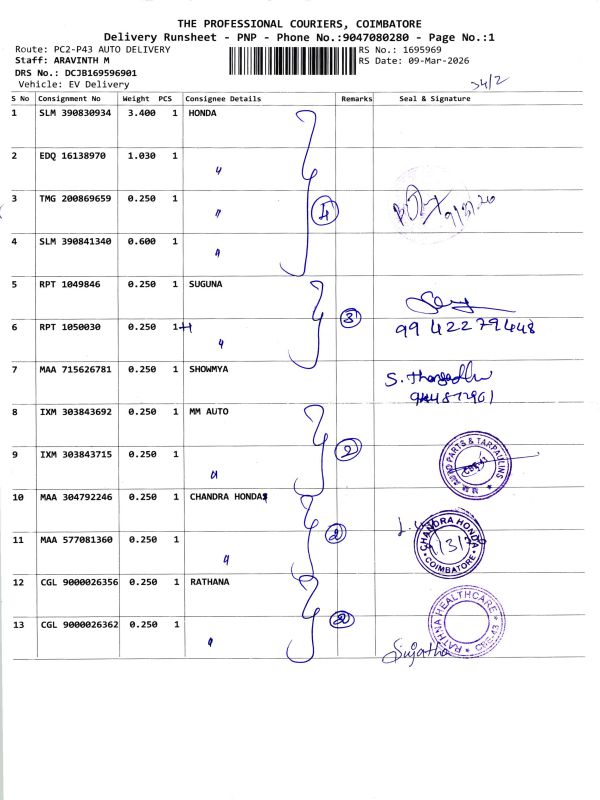 THE PROFESSIONAL COURIERS, COIMBATORE
Delivery Runsheet - PNP - Phone No.:9047080280 - Page No.:1
Route: PC2-P43 AUTO DELIVERY
RS No.: 1695969
Staff: ARAVINTH M
RS Date: 09-Mar-2026
DRS No.: DCJB169596901
Vehicle: EV Delivery
34/2
S No Consignment No Weight PCS Consignee Details Remarks Seal & Signature
1 SLM 390830934 3.400 1 HONDA
2 EDQ 16138970 1.030 1 "
3 TMG 200869659 0.250 1 " 4 9/3/26
4 SLM 390841340 0.600 1 "
5 RPT 1049846 0.250 1 SUGUNA
6 RPT 1050030 0.250 1+1 " 3 99 42279448
7 MAA 715626781 0.250 1 SHOWMYA S.
8 IXM 303843692 0.250 1 MM AUTO
9 IXM 303843715 0.250 1 " 2 M.M. AUTO PARTS & TARPAULINS CBE-43
10 MAA 304792246 0.250 1 CHANDRA HONDA
11 MAA 577081360 0.250 1 " 2 CHANDRA HONDA COIMBATORE
12 CGL 9000026356 0.250 1 RATHANA
13 CGL 9000026362 0.250 1 " 2 RATHNA HEALTHCARE CBE-43
Sujatha